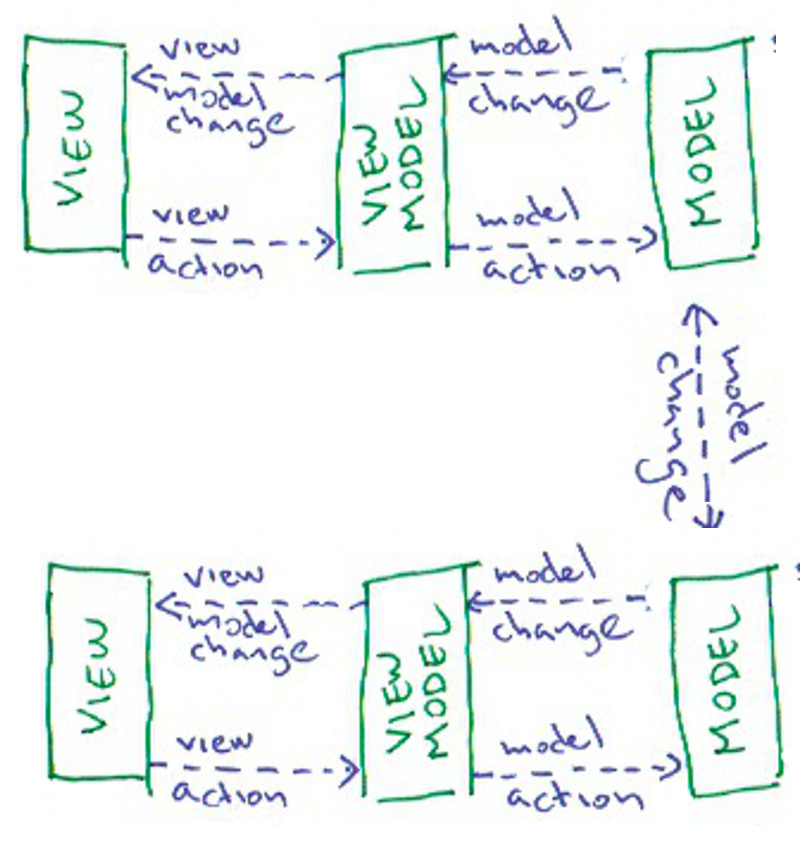 VIEW
view
model
change
view
action
VIEW
MODEL
model
change
model
action
MODEL
model
change
VIEW
view
model
change
view
action
VIEW
MODEL
model
change
model
action
MODEL